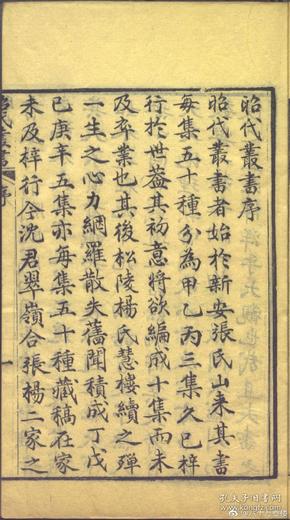 昭代叢書序
昭代叢書者始於新安張氏山来其書
每集五十種分為甲乙丙三集久已梓
行於世蓋其初意將欲編成十集而未
及卒業也其後松陵楊氏慧樓續之殫
一生之心力網羅散失舊聞積成丁戊
己庚辛五集亦每集五十種藏稿在家
未及梓行今沈君翠嶺合張楊二家之
序
一